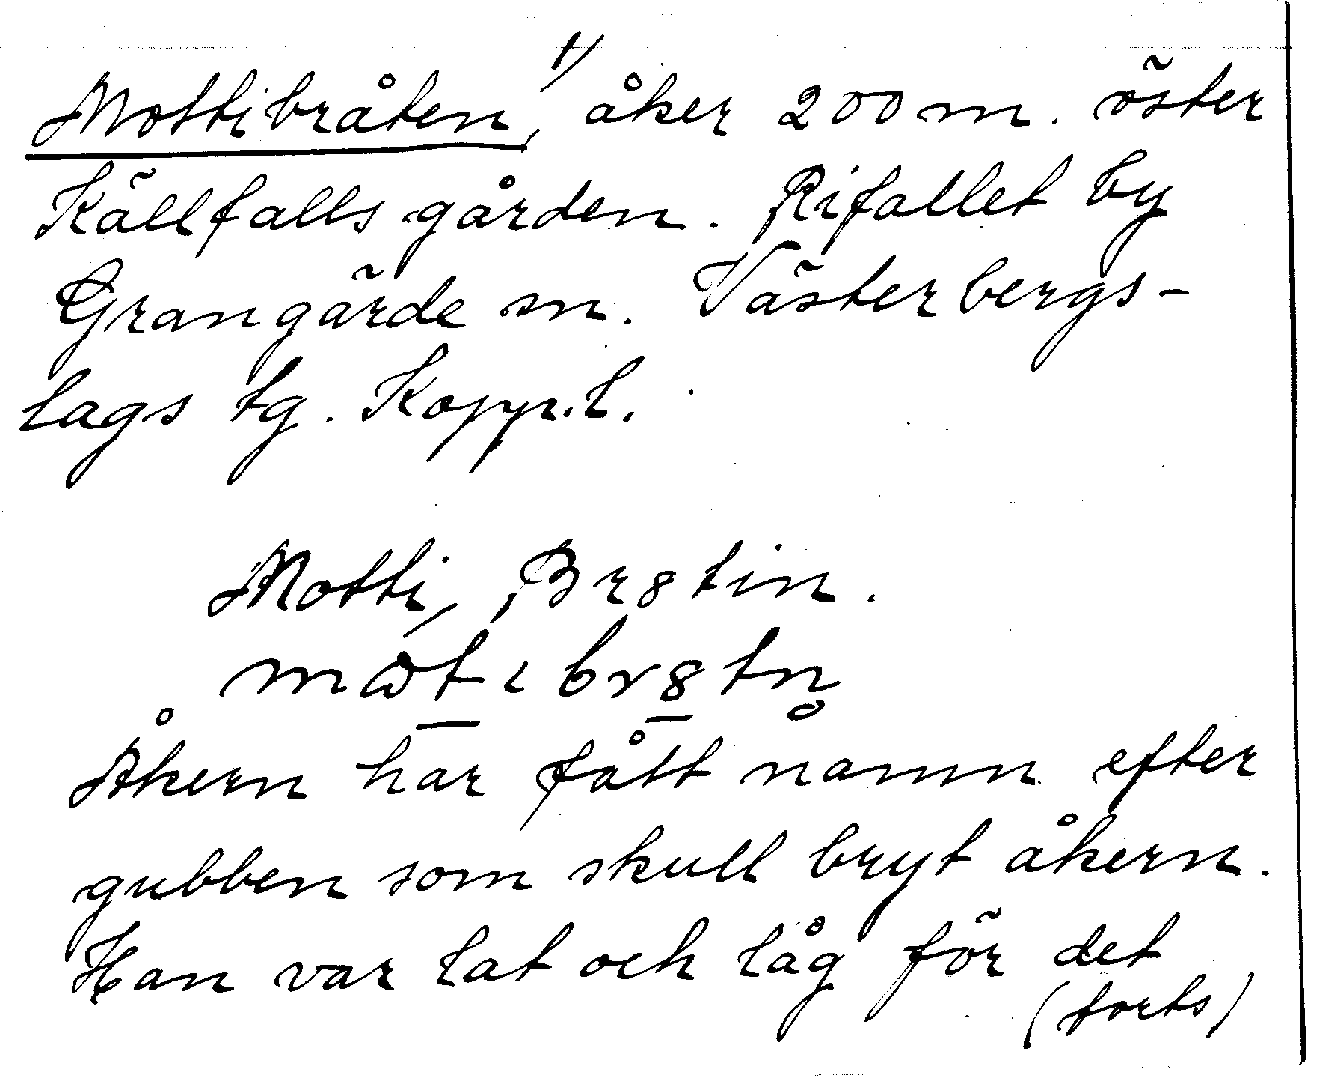 Mottibråten,¹⁾ åker 200 m. öster
Källfallsgården. Rifallet by
Grangärde sn. Västerbergs-
lags tg. Kopp.l.
Motti, Br8tin.
Åkern har fått namn efter
gubben som skull bryt åkern.
Han var lat och låg för det
(forts)